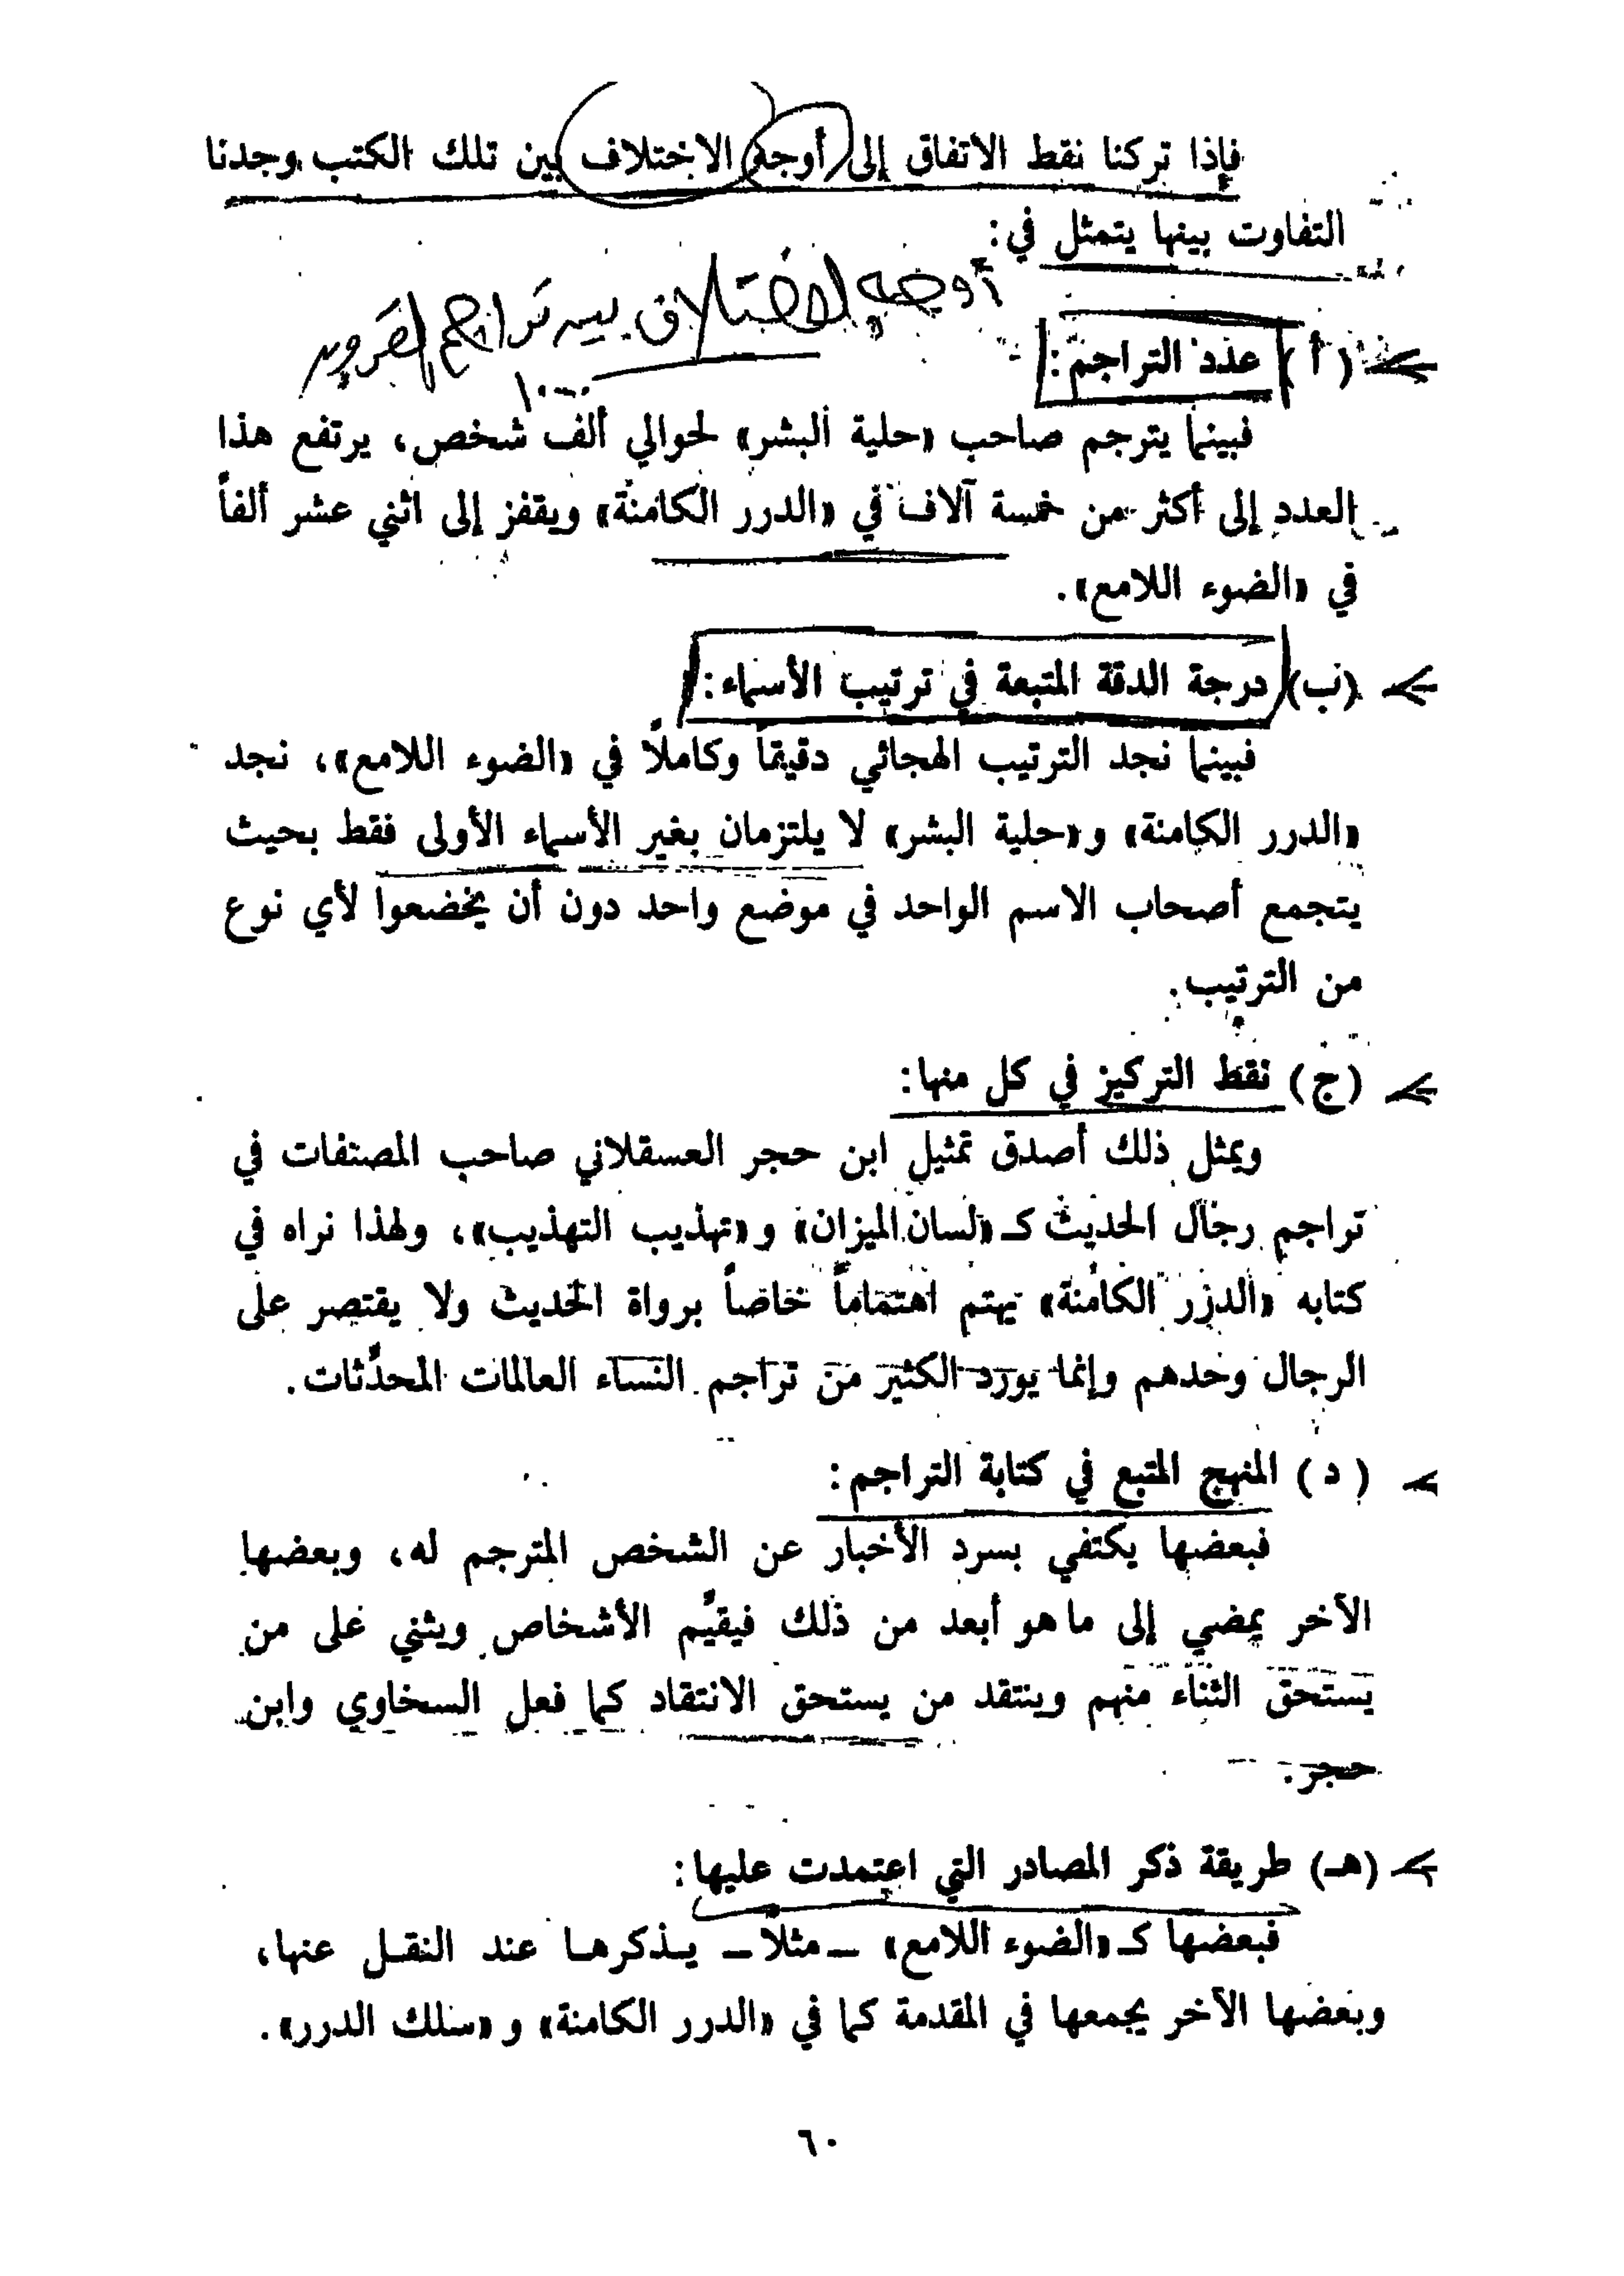 فإذا تركنا نقط الاتفاق إلى أوجه الاختلاف بين تلك الكتب وجدنا
التفاوت بينها يتمثل في:
أوجه الاختلاف بين تراجم القرون
(أ) عدد التراجم:
١٠٠٠
فبينما يترجم صاحب «حلية البشر» لحوالي ألف شخص، يرتفع هذا
العدد إلى أكثر من خمسة آلاف في «الدرر الكامنة» ويقفز إلى اثني عشر ألفاً
في «الضوء اللامع».
(ب) درجة الدقة المتبعة في ترتيب الأسماء:
فبينما نجد الترتيب الهجائي دقيقاً وكاملاً في «الضوء اللامع»، نجد
«الدرر الكامنة» و«حلية البشر» لا يلتزمان بغير الأسماء الأولى فقط بحيث
يتجمع أصحاب الاسم الواحد في موضع واحد دون أن يخضعوا لأي نوع
من الترتيب.
(ج) نقط التركيز في كل منها:
ويمثل ذلك أصدق تمثيل ابن حجر العسقلاني صاحب المصنفات في
تراجم رجال الحديث كـ «لسان الميزان» و «تهذيب التهذيب»، ولهذا نراه في
كتابه «الدرر الكامنة» يهتم اهتماماً خاصاً برواة الحديث ولا يقتصر على
الرجال وحدهم وإنما يورد الكثير من تراجم النساء العالمات المحدِّثات.
(د) المنهج المتبع في كتابة التراجم:
فبعضها يكتفي بسرد الأخبار عن الشخص المترجم له، وبعضها
الآخر يمضي إلى ما هو أبعد من ذلك فيقيِّم الأشخاص ويثني على من
يستحق الثناء منهم وينتقد من يستحق الانتقاد كما فعل السخاوي وابن
حجر.
(هـ) طريقة ذكر المصادر التي اعتمدت عليها:
فبعضها كـ «الضوء اللامع» – مثلاً – يـذكرهـا عند النقـل عنها،
وبعضها الآخر يجمعها في المقدمة كما في «الدرر الكامنة» و «سلك الدرر».
٦٠